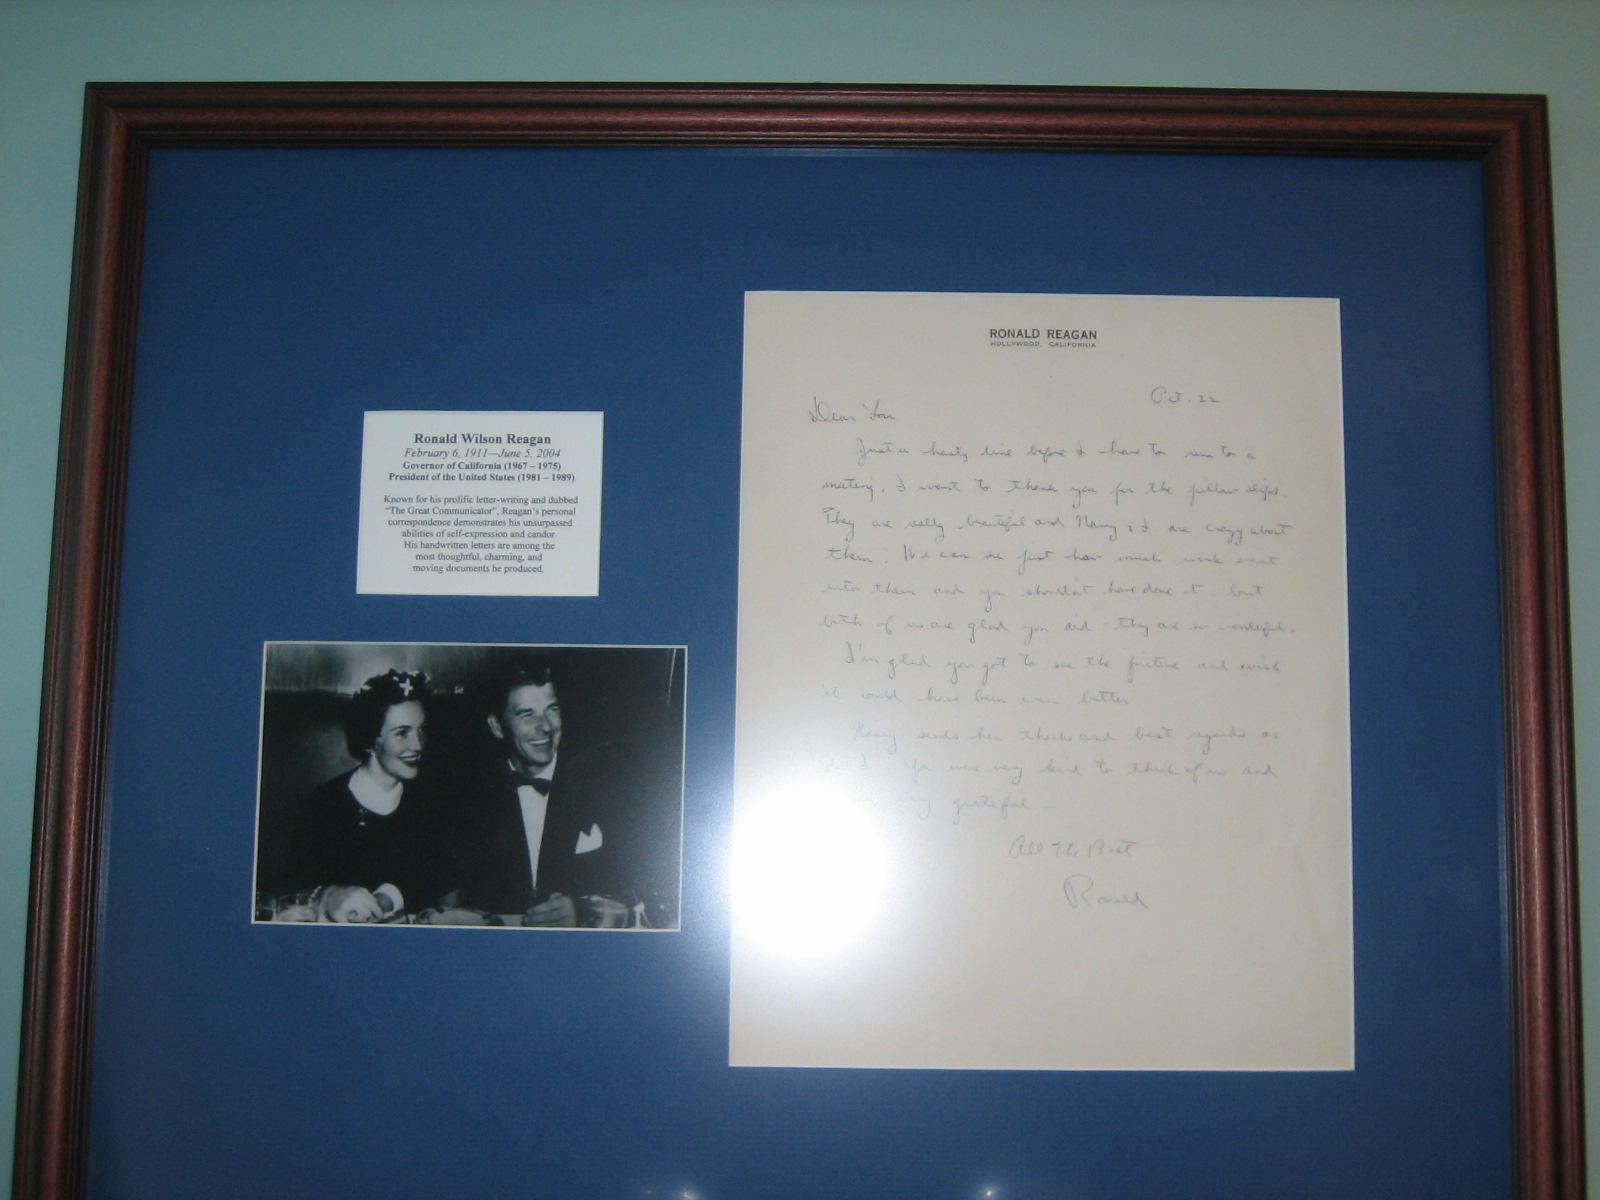 Ronald Wilson Reagan
February 6, 1911—June 5, 2004
Governor of California (1967 – 1975)
President of the United States (1981 – 1989)
Known for his prolific letter-writing and dubbed
"The Great Communicator", Reagan's personal
correspondence demonstrates his unsurpassed
abilities of self-expression and candor.
His handwritten letters are among the
most thoughtful, charming, and
moving documents he produced.
RONALD REAGAN
HOLLYWOOD, CALIFORNIA
Oct. 22
Dear
Just a hasty line before I have to run to a
meeting. I want to thank you for the pillow slips.
They are really beautiful and Nancy & I are crazy about
them. We can see just how much work went
into them and you shouldn't have done it but
both of us are glad you did - they are so wonderful.
I'm glad you got to see the picture and wish
it could have been even better
Nancy sends her thanks and best regards as
do I You were very kind to think of us and
very grateful
All The Best
Ronald